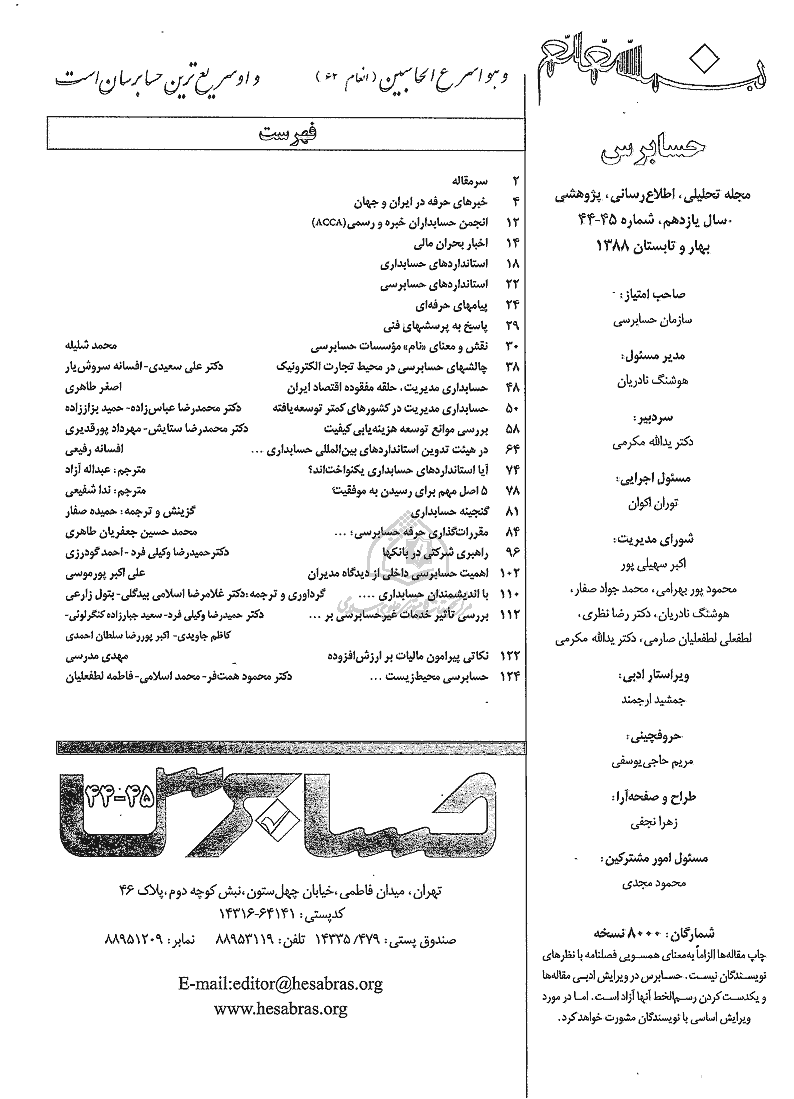 بسمه تعالی
حسابرس
مجله تحلیلی، اطلاع‌رسانی، پژوهشی
سال یازدهم، شماره ۴۵-۴۴
بهار و تابستان ۱۳۸۸
صاحب امتیاز:
سازمان حسابرسی
مدیر مسئول:
هوشنگ نادریان
سردبیر:
دکتر یدالله مکرمی
مسئول اجرایی:
توران اکوان
شورای مدیریت:
اکبر سهیلی پور
محمود پور بهرامی، محمد جواد صفار،
هوشنگ نادریان، دکتر رضا نظری،
لطفعلی لطفعلیان صارمی، دکتر یدالله مکرمی
ویراستار ادبی:
جمشید ارجمند
حروفچینی:
مریم حاجی‌یوسفی
طراح و صفحه‌آرا:
زهرا نجفی
مسئول امور مشترکین:
محمود مجدی
شمارگان: ۸۰۰۰ نسخه
چاپ مقاله‌ها الزاماً به‌معنای همسویی فصلنامه با نظرهای
نویسندگان نیست. حسابرس در ویرایش ادبی مقاله‌ها
و یکدست کردن رسم‌الخط آنها آزاد است. اما در مورد
ویرایش اساسی با نویسندگان مشورت خواهد کرد.
و هو اسرع الحاسبین (انعام ۶۲) و او سریع‌ترین حسابرسان است
فهرست
۲ سرمقاله
۴ خبرهای حرفه در ایران و جهان
۱۲ انجمن حسابداران خبره و رسمی(ACCA)
۱۴ اخبار بحران مالی
۱۸ استانداردهای حسابداری
۲۲ استانداردهای حسابرسی
۲۴ پیامهای حرفه‌ای
۲۹ پاسخ به پرسشهای فنی
۳۰ نقش و معنای «نام» مؤسسات حسابرسی محمد شلیله
۳۸ چالشهای حسابرسی در محیط تجارت الکترونیک دکتر علی سعیدی- افسانه سروش‌یار
۴۸ حسابداری مدیریت، حلقه مفقوده اقتصاد ایران اصغر طاهری
۵۰ حسابداری مدیریت در کشورهای کمتر توسعه‌یافته دکتر محمدرضا عباس‌زاده- حمید بزاززاده
۵۸ بررسی موانع توسعه هزینه‌یابی کیفیت دکتر محمدرضا ستایش- مهرداد پورقدیری
۶۴ در هیئت تدوین استانداردهای بین‌المللی حسابداری ... افسانه رفیعی
۷۴ آیا استانداردهای حسابداری یکنواخت‌اند؟ مترجم: عبداله آزاد
۷۸ ۵ اصل مهم برای رسیدن به موفقیت مترجم: ندا شفیعی
۸۱ گنجینه حسابداری گزینش و ترجمه: حمیده صفار
۸۴ مقررات‌گذاری حرفه حسابرسی؛ ... محمد حسین جعفریان طاهری
۹۶ راهبری شرکتی در بانکها دکتر حمیدرضا وکیلی فرد- احمد گودرزی
۱۰۲ اهمیت حسابرسی داخلی از دیدگاه مدیران علی اکبر پورموسی
۱۱۰ با اندیشمندان حسابداری .... گردآوری و ترجمه: دکتر غلامرضا اسلامی بیدگلی- بتول زارعی
۱۱۲ بررسی تأثیر خدمات غیرحسابرسی بر ... دکتر حمیدرضا وکیلی فرد- سعید جبارزاده کنگرلوئی-
کاظم جاویدی- اکبر پوررضا سلطان احمدی
۱۲۲ نکاتی پیرامون مالیات بر ارزش‌افزوده مهدی مدرسی
۱۲۴ حسابرسی محیط‌زیست ... دکتر محمود همت‌فر- محمد اسلامی- فاطمه لطفعلیان
حسابرس ۴۵-۴۴
تهران، میدان فاطمی، خیابان چهل‌ستون، نبش کوچه دوم، پلاک ۴۶
کدپستی: ۶۴۱۴۱-۱۴۳۱۶
صندوق پستی: ۴۷۹/ ۱۴۳۳۵ تلفن: ۸۸۹۵۳۱۱۹ نمابر: ۸۸۹۵۱۲۰۹
E-mail:editor@hesabras.org
www.hesabras.org